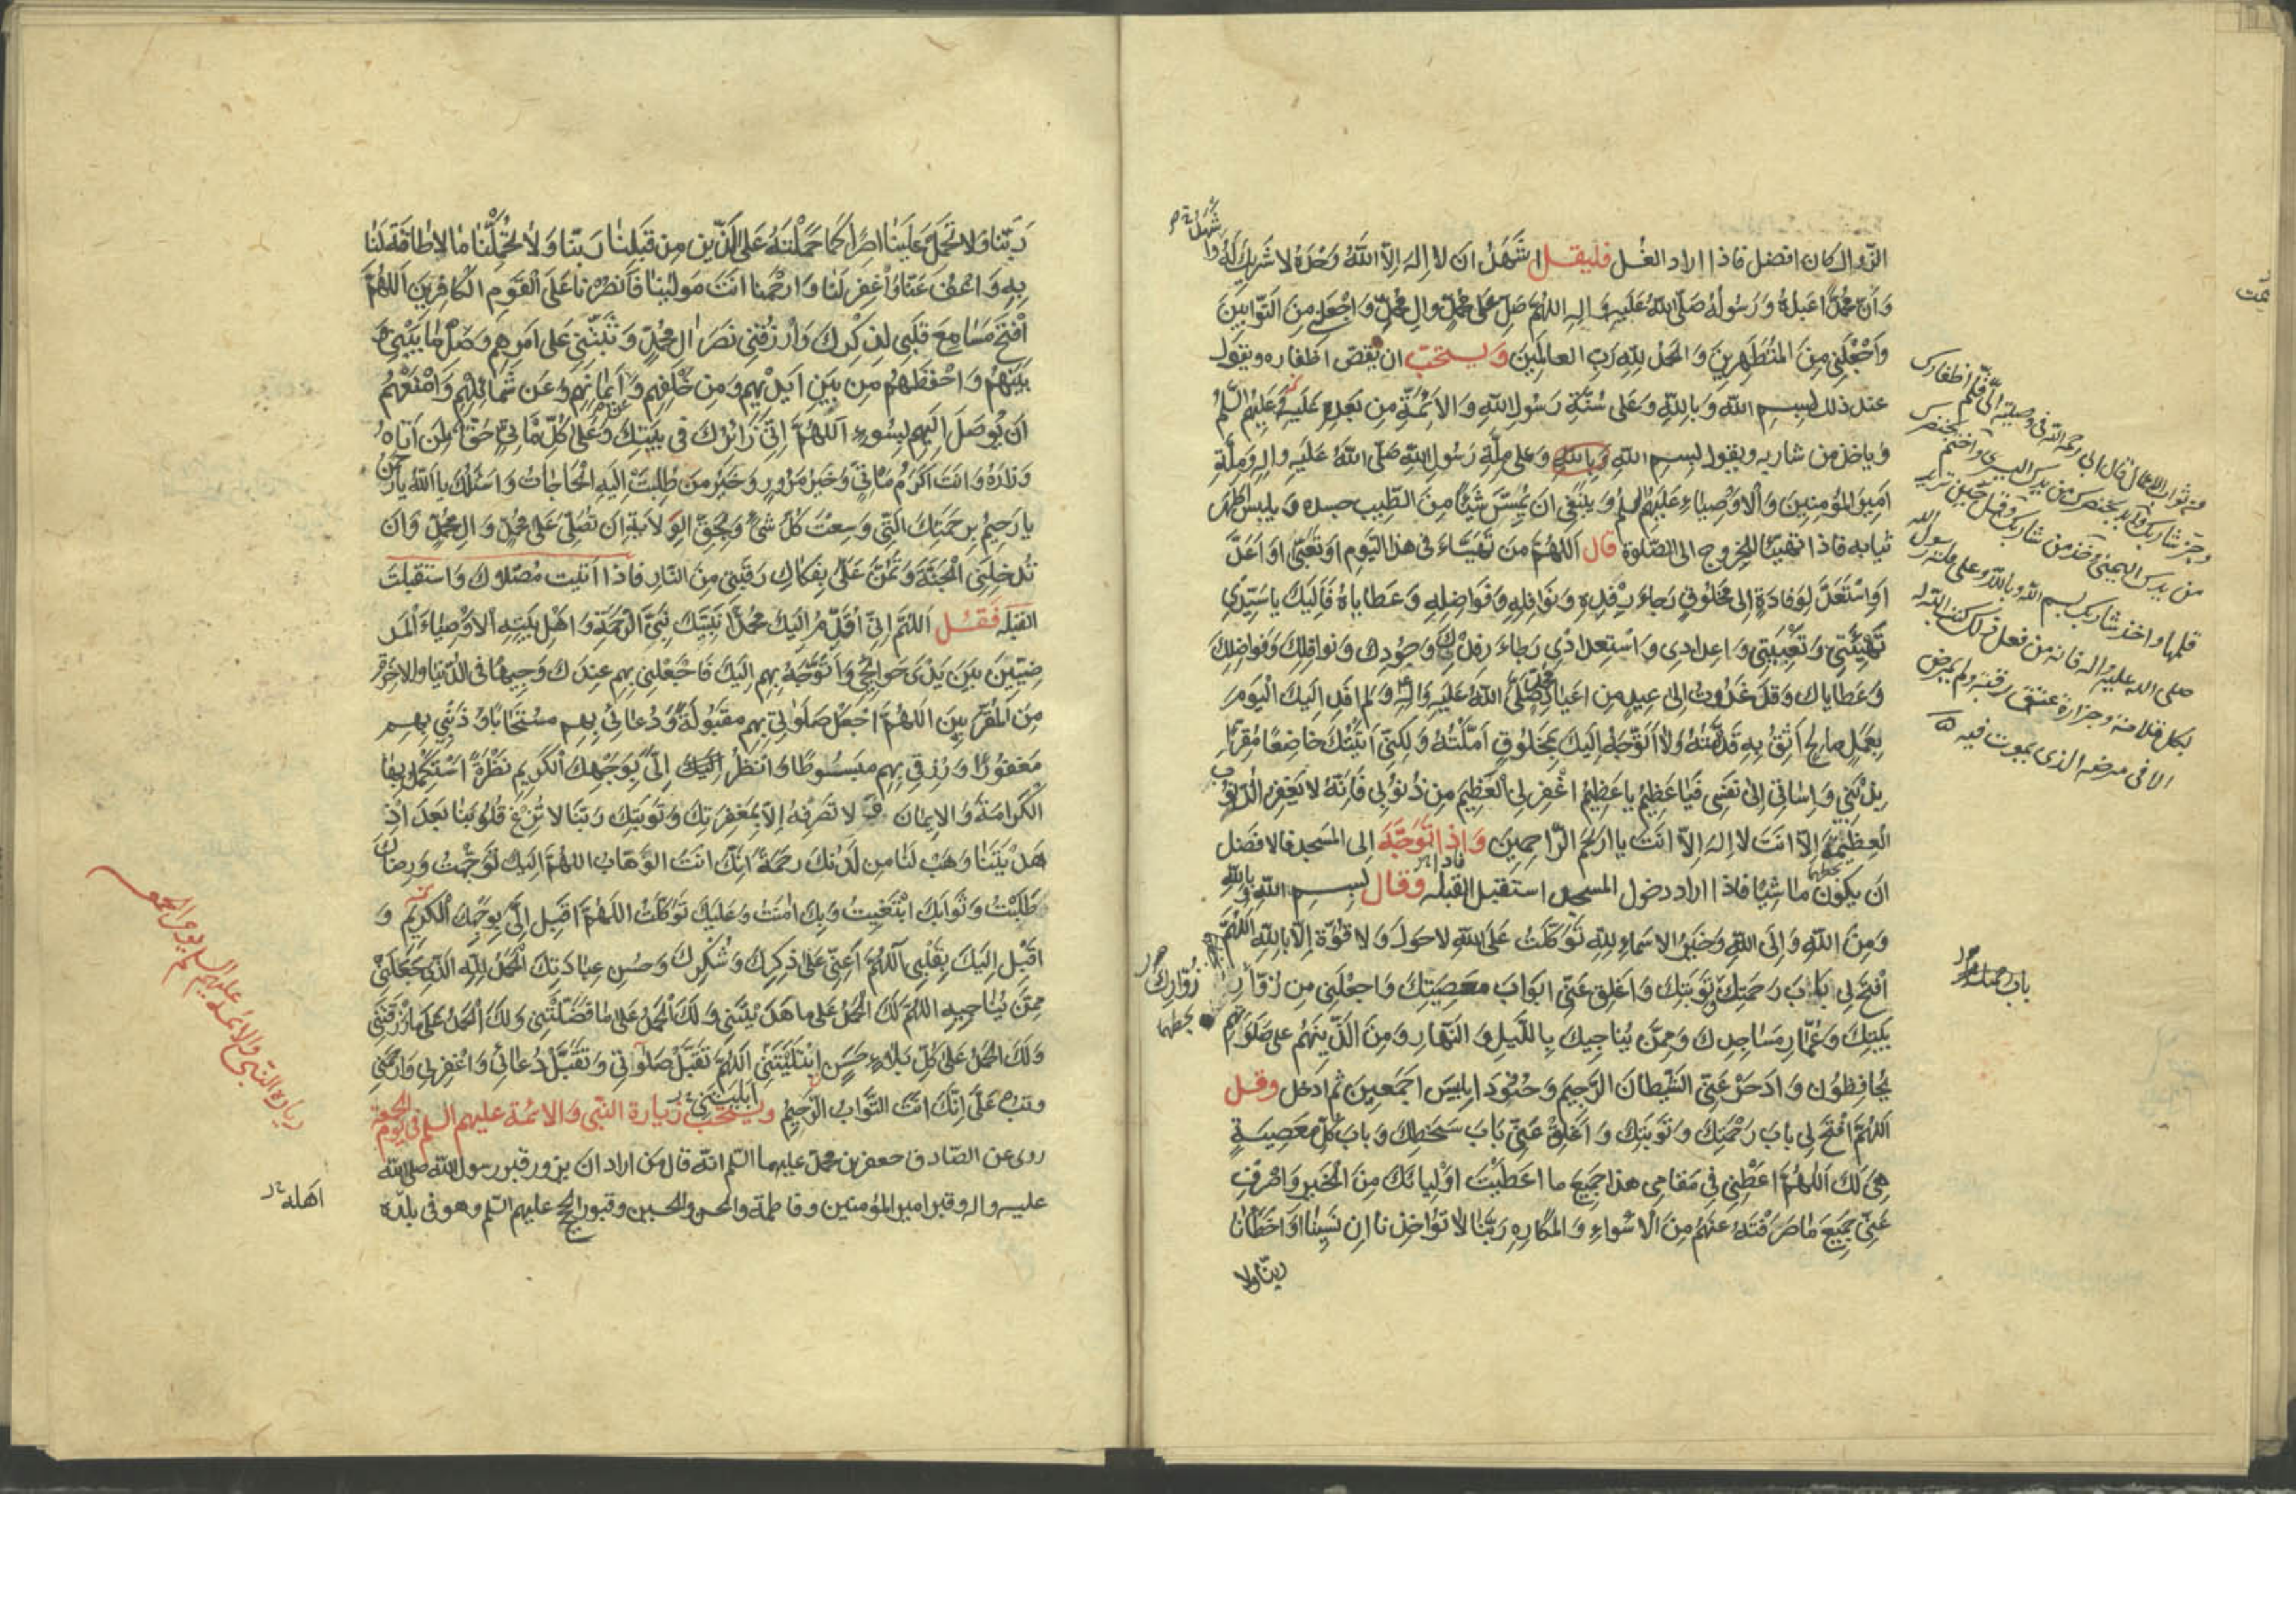 الزوال كان افضل فاذا اراد الغسل فليقل اشهد ان لا اله الا الله وحده لا شريك له وا
شهد
وان محمدا عبده ورسوله صلى الله عليه واله اللهم صل على محمد وال محمد واجعلني من التوابين
واجعلني من المتطهرين والحمد لله رب العالمين ويستحب ان يقص اظفاره ويقول
عند ذلك بسم الله وبالله وعلى سنة رسول الله والائمة من بعده عليه وعليهم السلم
وياخذ من شاربه ويقول بسم الله وبالله وعلى ملة رسول الله صلى الله عليه واله وملة
امير المؤمنين والاوصياء عليهم السلم وينبغي ان يمس شيئا من الطيب جسده ويلبس اطهر
ثيابه فاذا تهيئا للخروج الى الصلوة قال اللهم من تهياء في هذا اليوم او تعبى او اعد
او استعد لوفادة الى مخلوق رجاء رفده ونوافله وفواضله وعطاياه فاليك يا سيدي
تهيئتي وتعبيتي واعدادي واستعدادي رجاء رفدك وجودك ونوافلك وفواضلك
وعطاياك وقد غدوت الى عيد من اعياد محمد صلى الله عليه واله ولم افد اليك اليوم
بعمل صالح اثق به قدمته ولا اتوجه اليك بمخلوق املته ولكني اتيتك خاضعا مقرا
بذنبي واساتي الى نفسي فيا عظيم يا عظيم اغفر لي العظيم من ذنوبي فانه لا يغفر الذنوب
العظيمة الا انت لا اله الا انت يا ارحم الراحمين واذا توجه الى المسجد فالافضل
ان يكون ماشيا فاذا اراد دخول المسجد استقبل القبلة وقال بسم الله وبالله
ومن الله والى الله وخير الاسماء لله توكلت على الله لا حول ولا قوة الا بالله اللهم
افتح لي باب رحمتك وتوبتك واغلق عني ابواب معصيتك واجعلني من زوار
زوارك
بخطهما
بيتك وعمار مساجدك وممن يناجيك بالليل والنهار ومن الذين هم على صلوتهم
يحافظون وادحر عني الشيطان الرجيم وجنود ابليس اجمعين ثم ادخل وقل
اللهم افتح لي باب رحمتك وتوبتك واغلق عني باب سخطك وباب كل معصية
هي لك اللهم اعطني في مقامي هذا جميع ما اعطيت اوليائك من الخير واصرف
عني جميع ما صرفته عنهم من الاسواء والمكاره ربنا لا تؤاخذنا ان نسينا او اخطانا
ربنا ولا
من ثواب الاعمال قال ابي رحمه الله في وصيته الي قلم اظفارك
وجز شاربك وابدء بخنصرك من يدك اليسرى واختم بخنصرك
من يدك اليمنى وخذ من شاربك وقل حين تريد
قلمها واخذ شاربك بسم الله وبالله وعلى ملة رسول الله
صلى الله عليه واله فانه من فعل ذلك كتب الله له
بكل قلامة وجزازة عتق رقبة ولم يمرض
الا في مرضه الذي يموت فيه
ربنا ولا تحمل علينا اصرا كما حملته على الذين من قبلنا ربنا ولا تحملنا ما لا طاقة لنا
به واعف عنا واغفر لنا وارحمنا انت مولينا فانصرنا على القوم الكافرين اللهم
افتح مسامع قلبي لذكرك وارزقني نصر ال محمد وثبتني على امرهم وصل ما بيني و
بينهم واحفظهم من بين ايديهم ومن خلفهم وعن ايمانهم وعن شمائلهم وامنعهم
ان يوصل اليهم بسوء اللهم اني زائرك في بيتك وعلى كل ماتي حق لمن اتاه
وزاره وانت اكرم ماتي وخير مزور وخير من طلبت اليه الحاجات واسئلك يا الله يا رحمن
يا رحيم برحمتك التي وسعت كل شئ وبحق الولاية ان تصلي على محمد وال محمد وان
تدخلني الجنة وتمن علي بفكاك رقبتي من النار فاذا اتيت مصلاك واستقبلت
القبلة فقل اللهم اني اقدم اليك محمدا نبيك نبي الرحمة واهل بيته الاوصياء المر
ضيين بين يدي حوائجي واتوجه بهم اليك فاجعلني بهم عندك وجيها في الدنيا والاخرة
من المقربين اللهم اجعل صلواتي بهم مقبولة ودعائي بهم مستجابا وذنبي بهم
مغفورا ورزقي بهم مبسوطا وانظر الي بوجهك الكريم نظرة استكمل بها
الكرامة والايمان ثم لا تصرفه الا بمغفرتك وتوبتك ربنا لا تزغ قلوبنا بعد اذ
هديتنا وهب لنا من لدنك رحمة انك انت الوهاب اللهم اليك توجهت ورضاك
طلبت وثوابك ابتغيت وبك امنت وعليك توكلت اللهم اقبل الي بوجهك الكريم و
اقبل اليك بقلبي اللهم اعني على ذكرك وشكرك وحسن عبادتك الحمد لله الذي جعلني
ممن يناجيه اللهم لك الحمد على ما هديتني ولك الحمد على ما فضلتني ولك الحمد على ما رزقتني
ولك الحمد على كل بلاء حسن ابتليتني اللهم تقبل صلواتي وتقبل دعائي واغفر لي وارحمني
وتب علي انك انت التواب الرحيم ويستحب زيارة النبي والائمة عليهم السلم في يوم الجمعة
روى عن الصادق جعفر بن محمد عليهما السلم انه قال من اراد ان يزور قبر رسول الله صلى الله
عليه واله وقبر امير المؤمنين وفاطمة والحسن والحسين وقبور الحجج عليهم السلم وهو في بلده
زيارة النبي والائمة عليهم السلم يوم الجمعة